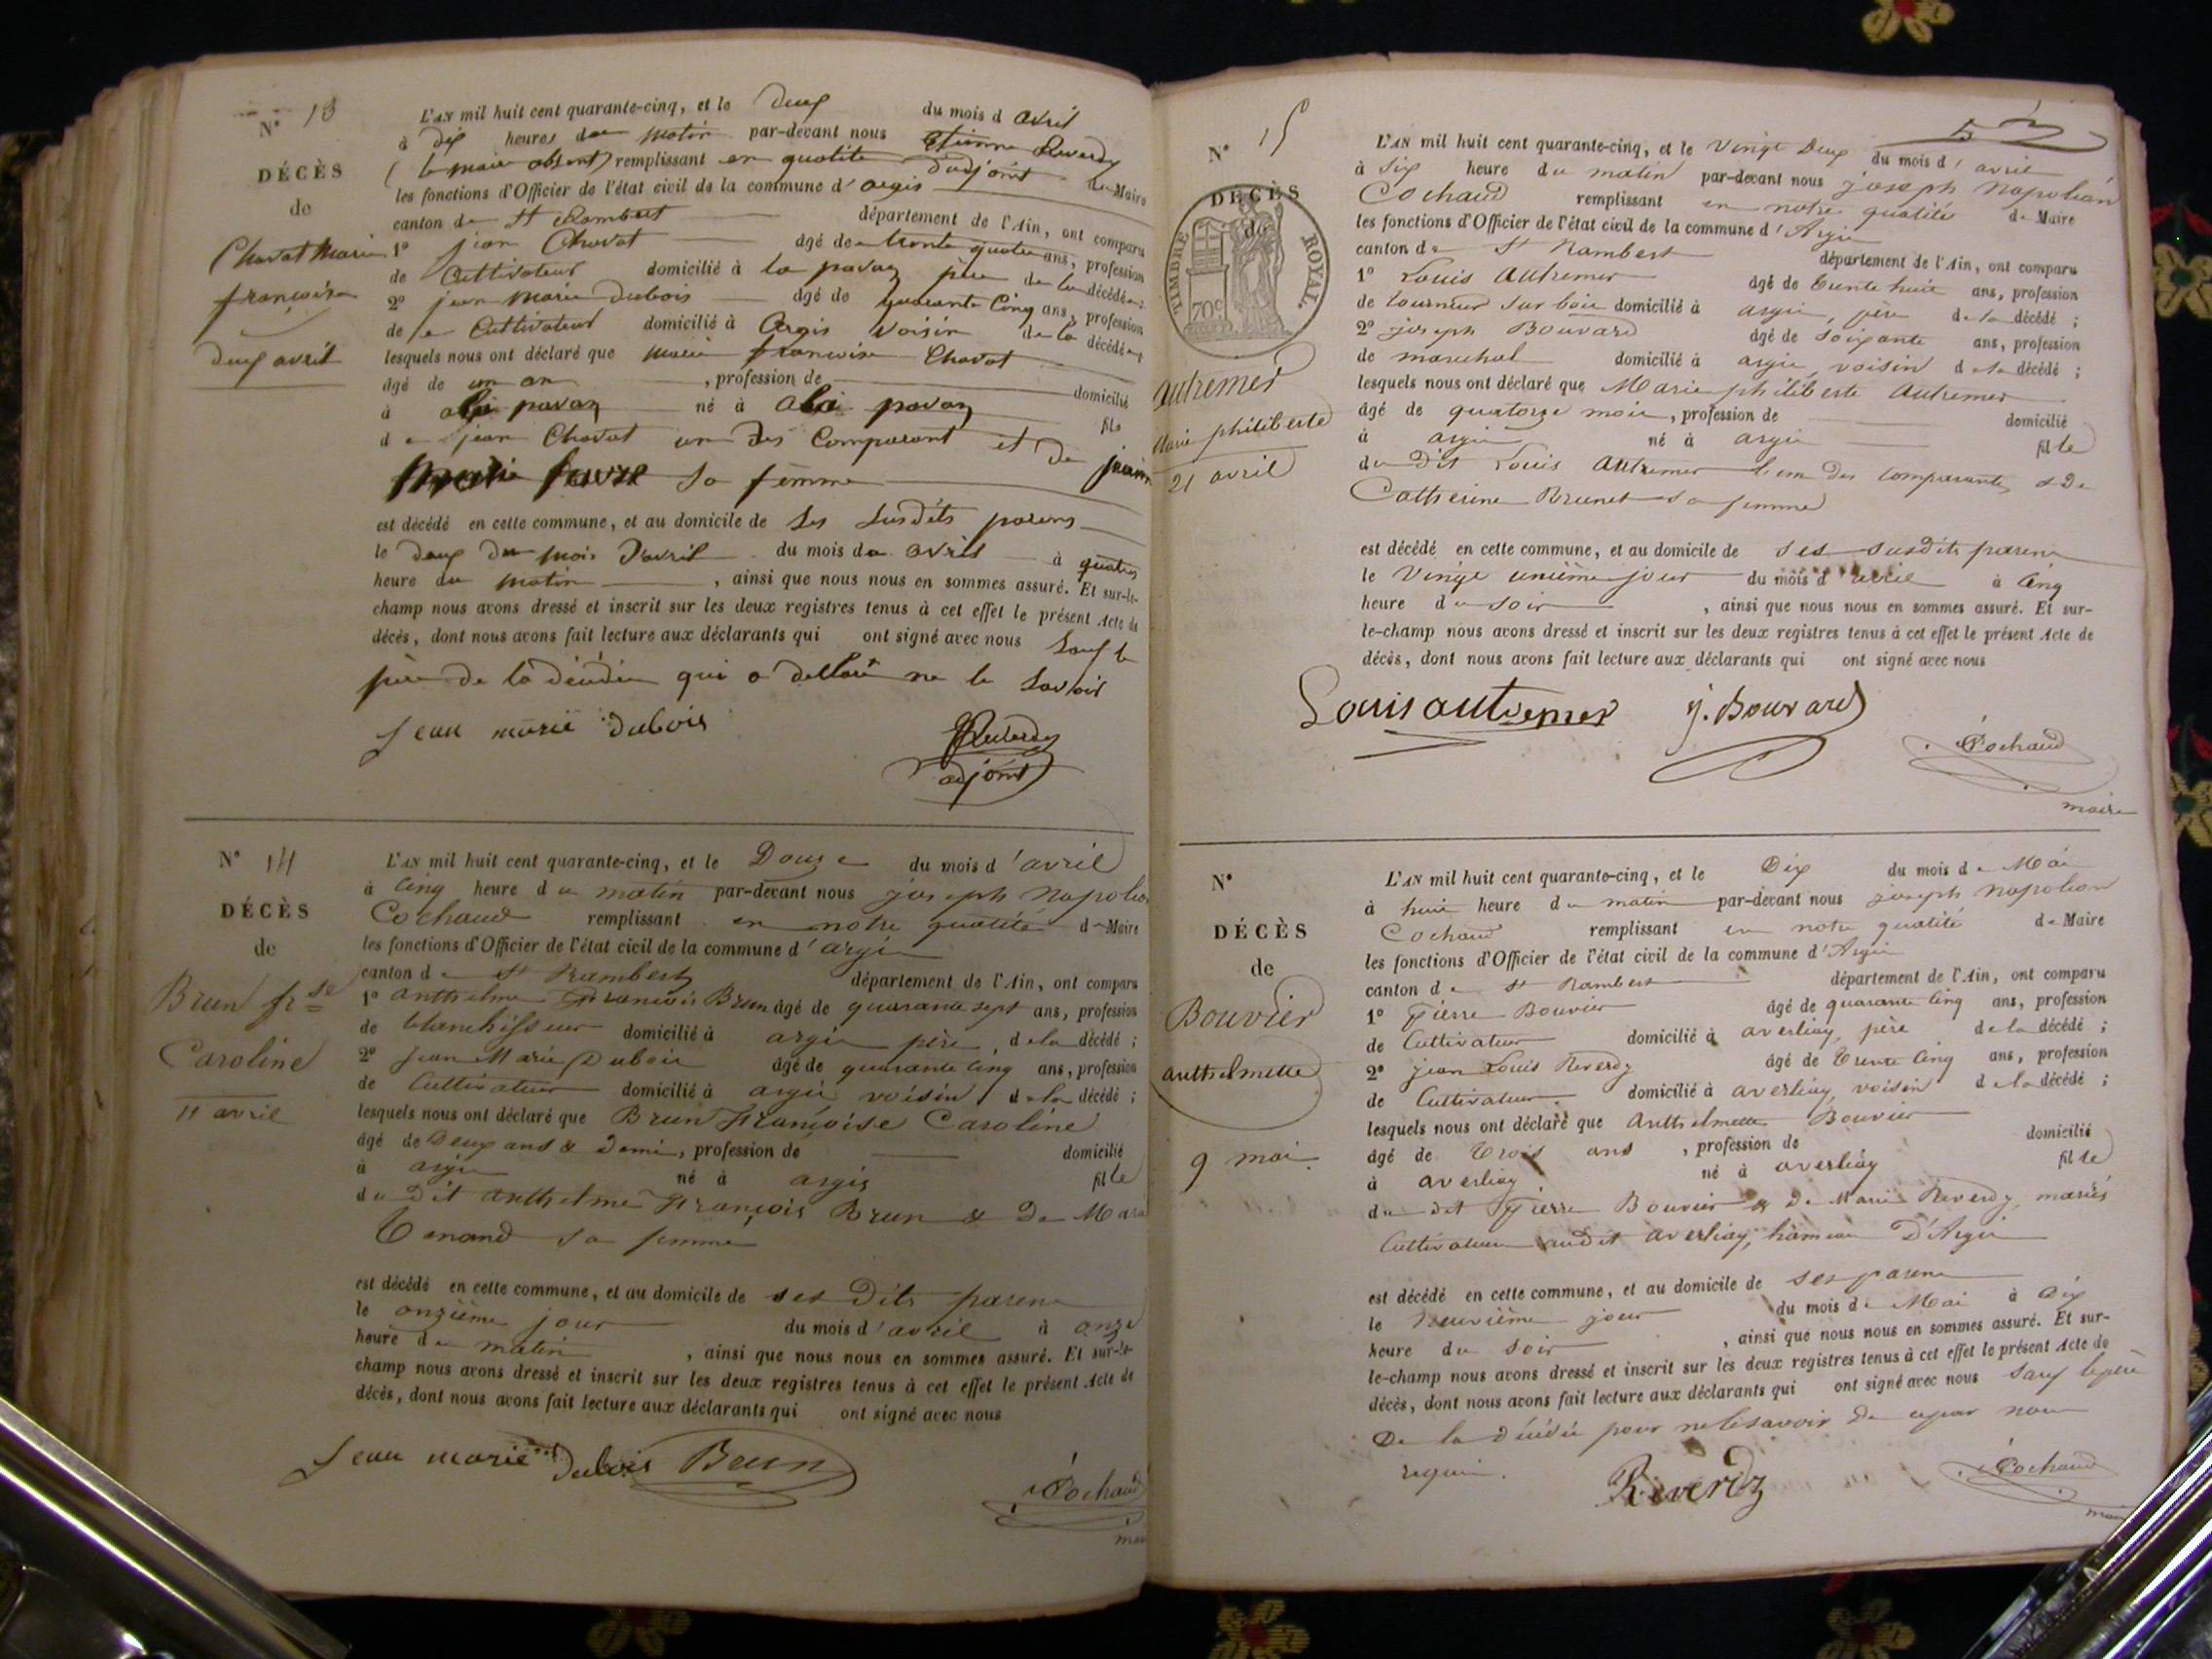 N° 13
DÉCÈS
de
Chavat Marie
françoise
deux avril
L'AN mil huit cent quarante-cinq, et le deux du mois d avril
à dix heures du matin par-devant nous Etienne Reverdy
(le maire absent) remplissant en qualité d'adjoint de Maire
les fonctions d'Officier de l'état civil de la commune d'argis
canton de St Rambert département de l'Ain, ont comparu
1° jean Chavat âgé de trente quatre ans, profession
de Cultivateur domicilié à la pavaz père de la décédée;
2° jean marie dubois âgé de quarante Cinq ans, profession
de Cultivateur domicilié à Argis voisin de la décédée
lesquels nous ont déclaré que marie francoise Chavat
âgé de un an , profession de domicilié
à pavaz né à pavaz fil
de jean Chavat un des Comparant et de jeanne
Marie favre sa femme
est décédé en cette commune, et au domicile de ses susdits parens
le deux du mois d'avril du mois de avril à quatre
heure du matin , ainsi que nous nous en sommes assuré. Et sur-le-
champ nous avons dressé et inscrit sur les deux registres tenus à cet effet le présent Acte de
décès, dont nous avons fait lecture aux déclarants qui ont signé avec nous Sauf le
père de la décédée qui a déllaré ne le savoir
Jean marie dubois
Reverdy
adjoint
N° 14
DÉCÈS
de
Brun fse
Caroline
11 avril
L'AN mil huit cent quarante-cinq, et le Douze du mois d'avril
à cinq heure du matin par-devant nous joseph napoléon
Cochaud remplissant en notre qualité de Maire
les fonctions d'Officier de l'état civil de la commune d'argis
canton de St Rambert département de l'Ain, ont comparu
1° anthelme François Brun âgé de quarante sept ans, profession
de blanchisseur domicilié à argis père, de la décédé;
2° Jean Marie Dubois âgé de quarante cinq ans, profession
de Cultivateur domicilié à argis voisin de la décédé;
lesquels nous ont déclaré que Brun Françoise Caroline
âgé de Deux ans & Demi, profession de domicilié
à argis né à argis fille
du dit anthelme François Brun & De Marie
Tenand sa femme
est décédé en cette commune, et au domicile de ses Dits parens
le onzième jour du mois d'avril à onze
heure du matin , ainsi que nous nous en sommes assuré. Et sur-le-
champ nous avons dressé et inscrit sur les deux registres tenus à cet effet le présent Acte de
décès, dont nous avons fait lecture aux déclarants qui ont signé avec nous
Jean marie Dubois Brun
Cochaud
N° 15
DÉCÈS
de
TIMBRE ROYAL.
70c
autremer
Marie philiberte
21 avril
L'AN mil huit cent quarante-cinq, et le Vingt Deux du mois d'avril
à Six heure du matin par-devant nous joseph Napoléon
Cochaud remplissant en notre qualité de Maire
les fonctions d'Officier de l'état civil de la commune d'Argis
canton de St Rambert département de l'Ain, ont comparu
1° Louis Autremer âgé de trente huit ans, profession
de tourneur sur bois domicilié à argis, père de la décédé;
2° joseph Bouvard âgé de soixante ans, profession
de marechal domicilié à argis, voisin de la décédé;
lesquels nous ont déclaré que Marie philiberte Autremer
âgé de quatorze mois, profession de domicilié
à argis né à argis fille
du dit Louis Autremer l'un des comparants & De
Catherine Brunet sa femme
est décédé en cette commune, et au domicile de ses susdits parens
le Vingt unième jour du mois d'avril à cinq
heure du soir , ainsi que nous nous en sommes assuré. Et sur-
le-champ nous avons dressé et inscrit sur les deux registres tenus à cet effet le présent Acte de
décès, dont nous avons fait lecture aux déclarants qui ont signé avec nous
Louis autremer J. Bouvard
Cochaud
maire
N°
DÉCÈS
de
Bouvier
anthelmette
9 mai
L'AN mil huit cent quarante-cinq, et le Dix du mois de Mai
à huit heure du matin par-devant nous joseph napoléon
Cochaud remplissant en notre qualité de Maire
les fonctions d'Officier de l'état civil de la commune d'Argis
canton de St Rambert département de l'Ain, ont comparu
1° Pierre Bouvier âgé de quarante cinq ans, profession
de Cultivateur domicilié à averliay, père de la décédé;
2° jean Louis Reverdy âgé de trente cinq ans, profession
de Cultivateur domicilié à averliay, voisin de la décédé;
lesquels nous ont déclaré que Anthelmette Bouvier
âgé de trois ans , profession de domicilié
à averliay né à averliay fille
du dit Pierre Bouvier & De Marie Reverdy, mariés
Cultivateurs audit averliay, hameau D'Argis
est décédé en cette commune, et au domicile de ses parens
le neuvième jour du mois de Mai à dix
heure du soir , ainsi que nous nous en sommes assuré. Et sur-
le-champ nous avons dressé et inscrit sur les deux registres tenus à cet effet le présent Acte de
décès, dont nous avons fait lecture aux déclarants qui ont signé avec nous sauf le père
De la décédée pour ne le savoir De ce par nous
requis.
Reverdy
Cochaud